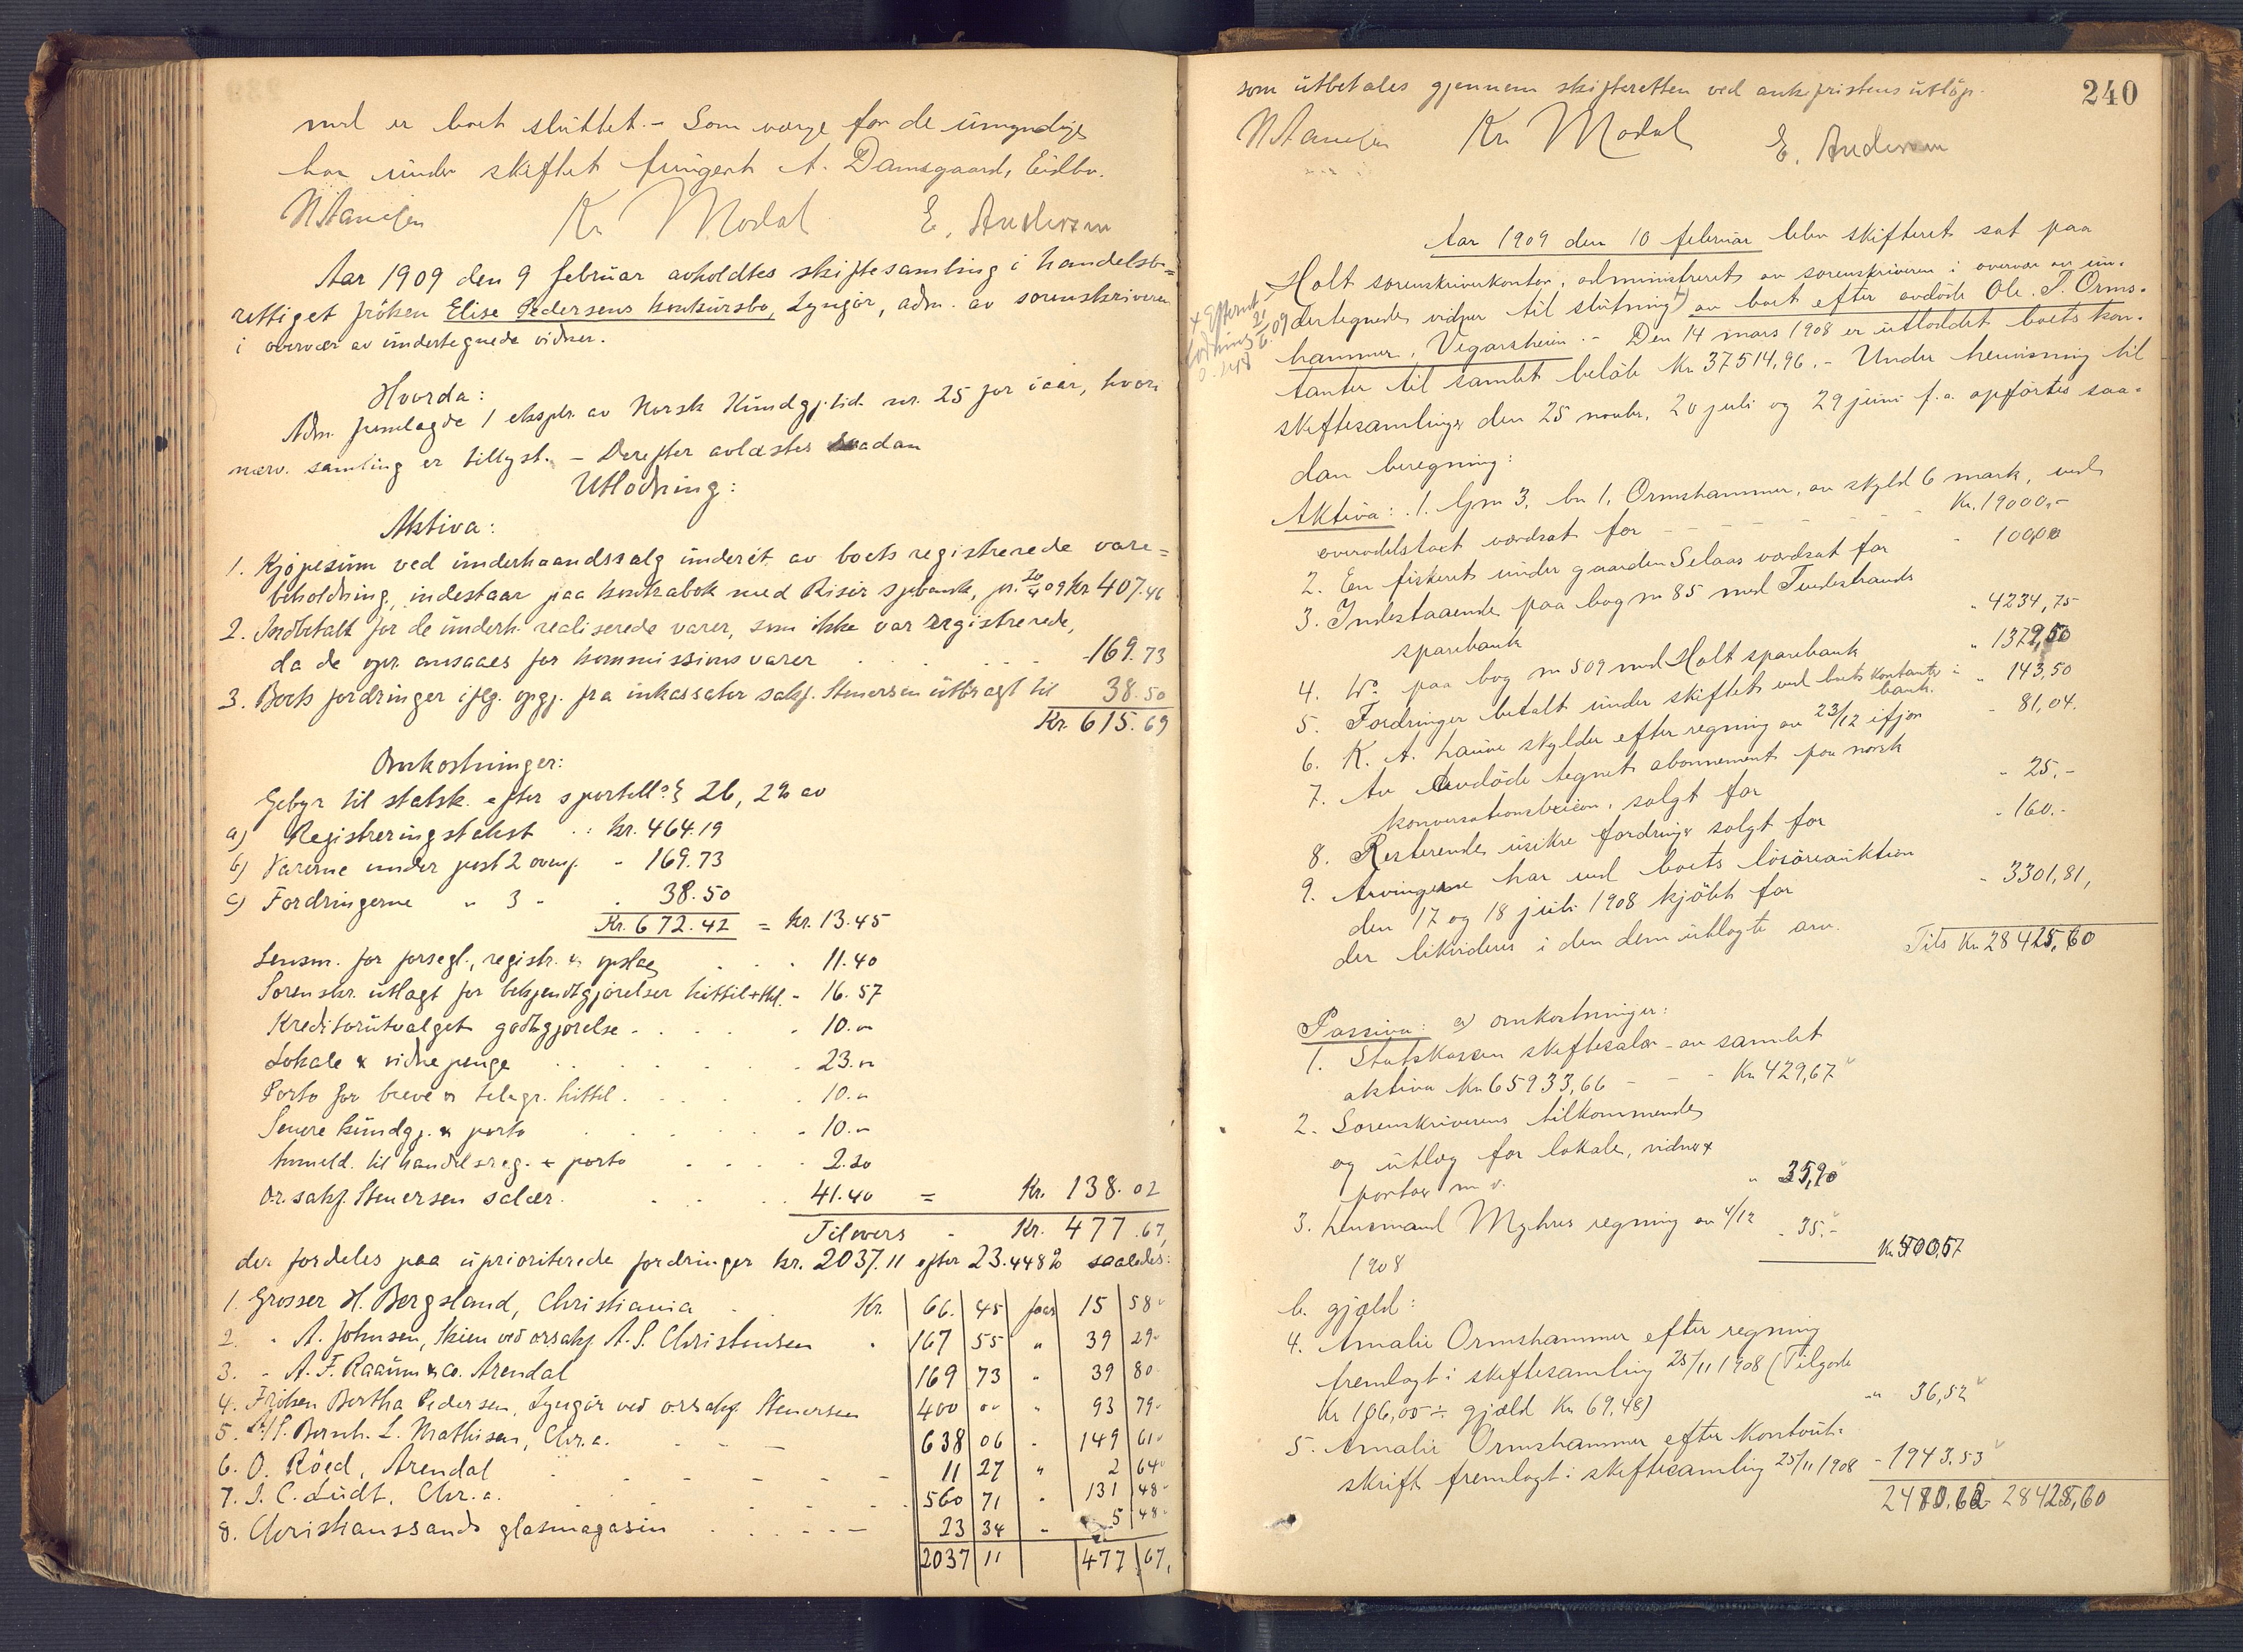 med er boet sluttet. - Som værge for de umyndige
har under skiftet fungert A. Damsgaard, Eidbo.
Kr Modal E. Andersen
Aar 1909 den 9 februar avholdtes skiftesamling i handelsbe=
rettiget frøken Elise Pedersens konkursbo, Lyngør, adm. av sorenskriveren
i overvær av undertegnede vidner.
Hvorda:
Adm. fremlagde 1 ekspl. av Norsk Kundgj.tid. nr. 25 for iaar, hvori
nærv. samling er tillyst. - Derefter avlæstes saadan
Utlodning:
Aktiva:
1. Kjøpesum ved underhaandssalg underét av boets registrerede vare=
beholdning, indestaar paa kontrabok med Risør spbank, pr. 20/4 09 kr 407.46
2. Indbetalt for de underh. realiserede varer, som ikke var registrerede,
da de opr. ansaaes for kommissionsvarer - 169.73
3. Boets fordringer iflg. opgj. fra inkassator sakf. Stenersen utbragt til 38.50
Kr. 615.69
Omkostninger:
Gebyr til statsk. efter sportell. § 26, 2% av
a) Registreringstakst : kr. 464.19
b) Varerne under post 2 ovenf. - 169.73
c) Fordringerne " 3 - . 38.50
Kr. 672.42 = kr. 13.45
Lensm. for forsegl., registr. & opslag . . . 11.40
Sorenskr. utlagt for bekjendtgjørelser hittil + tkl. - 16.57
Kreditorutvalgets godtgjørelse - . . . . 10.00
Lokale & vidnepenge . . . . . 23.00
Porto for breve & telegr. hittil . . . . 10.00
Senere kundgj. & porto . . . . - 10.00
Anmeld. til handelsreg. & porto . . . . 2.20
Or.sakf. Stenersen salær. . . . 41.40 = Kr. 138.02
Tilovers - Kr. 477.67,
der fordeles paa uprioriterede fordringer kr. 2037.11 efter 23.448% saaledes:
1. Grosser H. Bergsland, Christiania . . Kr. 66. 45 faar 15 58
2. " A. Johnsen, Skien ved orsakf. A. S. Christensen . 167 55 " 39 29
3. - A. F. Raaum & Co. Arendal 169 73 " 39 80
4. Frøken Bertha Pedersen, Lyngør ved o.r.sakf. Stenersen 400 00 " 93 79
5. Bernh. L. Mathisen, Chr.a. 638 06 - 149 61
6. O. Röed, Arendal 11 27 " 2 64
7. J. C. Ludt, Chr.a. 560 71 . 131 48
8. Christianssands glasmagasin 23 34 - 5 48
2037 11 477 67,
som utbetales gjennem skifteretten ved ankefristens utløp. 240
Kr Modal E. Andersen
Aar 1909 den 10 februar blev skifteret sat paa
Holt sorenskriverkontor, administreret av sorenskriveren i overvær av un-
dertegnede vidner til slutning +) av boet efter avdøde Ole T. Orms-
+ Efterut-
lodning 21/6 09
hammer, Vegarsheien. - Den 14 mars 1908 er utloddet boets kon-
tanter til samlet beløb Kr 37514,96. - Under henvisning til
skiftesamlinger den 25 novbr, 20 juli og 29 juni f.a. opførtes saa-
dan beregning:
Aktiva: 1. Gno 3, bn 1, Ormshammer, av skyld 6 mark, ved
overodelstaxt værdsat for - - - - - - Kr. 19000,-
2. En fiskeret under gaarden Selaas værdsat for " 100,00
3. Indestaaende paa bog no 85 med Tvedestrands
sparebank " 4234,75
4. Do paa bog no 509 med Holt sparebank " 1379,50
5. Fordringer betalt under skiftet ved boets kontanter i
bank. " 143,50
6. K. A. Hauve skylder efter regning av 23/12 ifjor - 81,04.
7. Av avdøde tegnet abonnement paa norsk
konversationslexicon, solgt for - 25.-
8. Resterende usikre fordringer solgt for - 160.-
9. Arvingerne har ved boets løsöreauktion
den 17 og 18 juli 1908 kjöbt for - 3301,81,
der likvideres i den dem utlagte arv.
Tils Kr. 28425,60
Passiva: a) omkostninger:
1. Statskassen skiftesalær - av samlet
aktiva Kr. 65933,66 - - - Kr. 429,67
2. Sorenskriverens tilkommende
og utlæg for lokale, vidner &
portoer m. v. " 35,90
3. Lensmand Myhres regning av 4/12 - 35.-
1908 Kr. 500,57
b. gjæld:
4. Amalie Ormshammer efter regning
fremlagt i skiftesamling 25/11 1908 (Tilgode
Kr 106,00 ÷ gjæld Kr 69,48) -"- 36,52
5. Amalie Ormshammer efter Kontout-
skrift fremlagt i skiftesamling 25/11 1908 - 1943.53
2480.62 28425,60